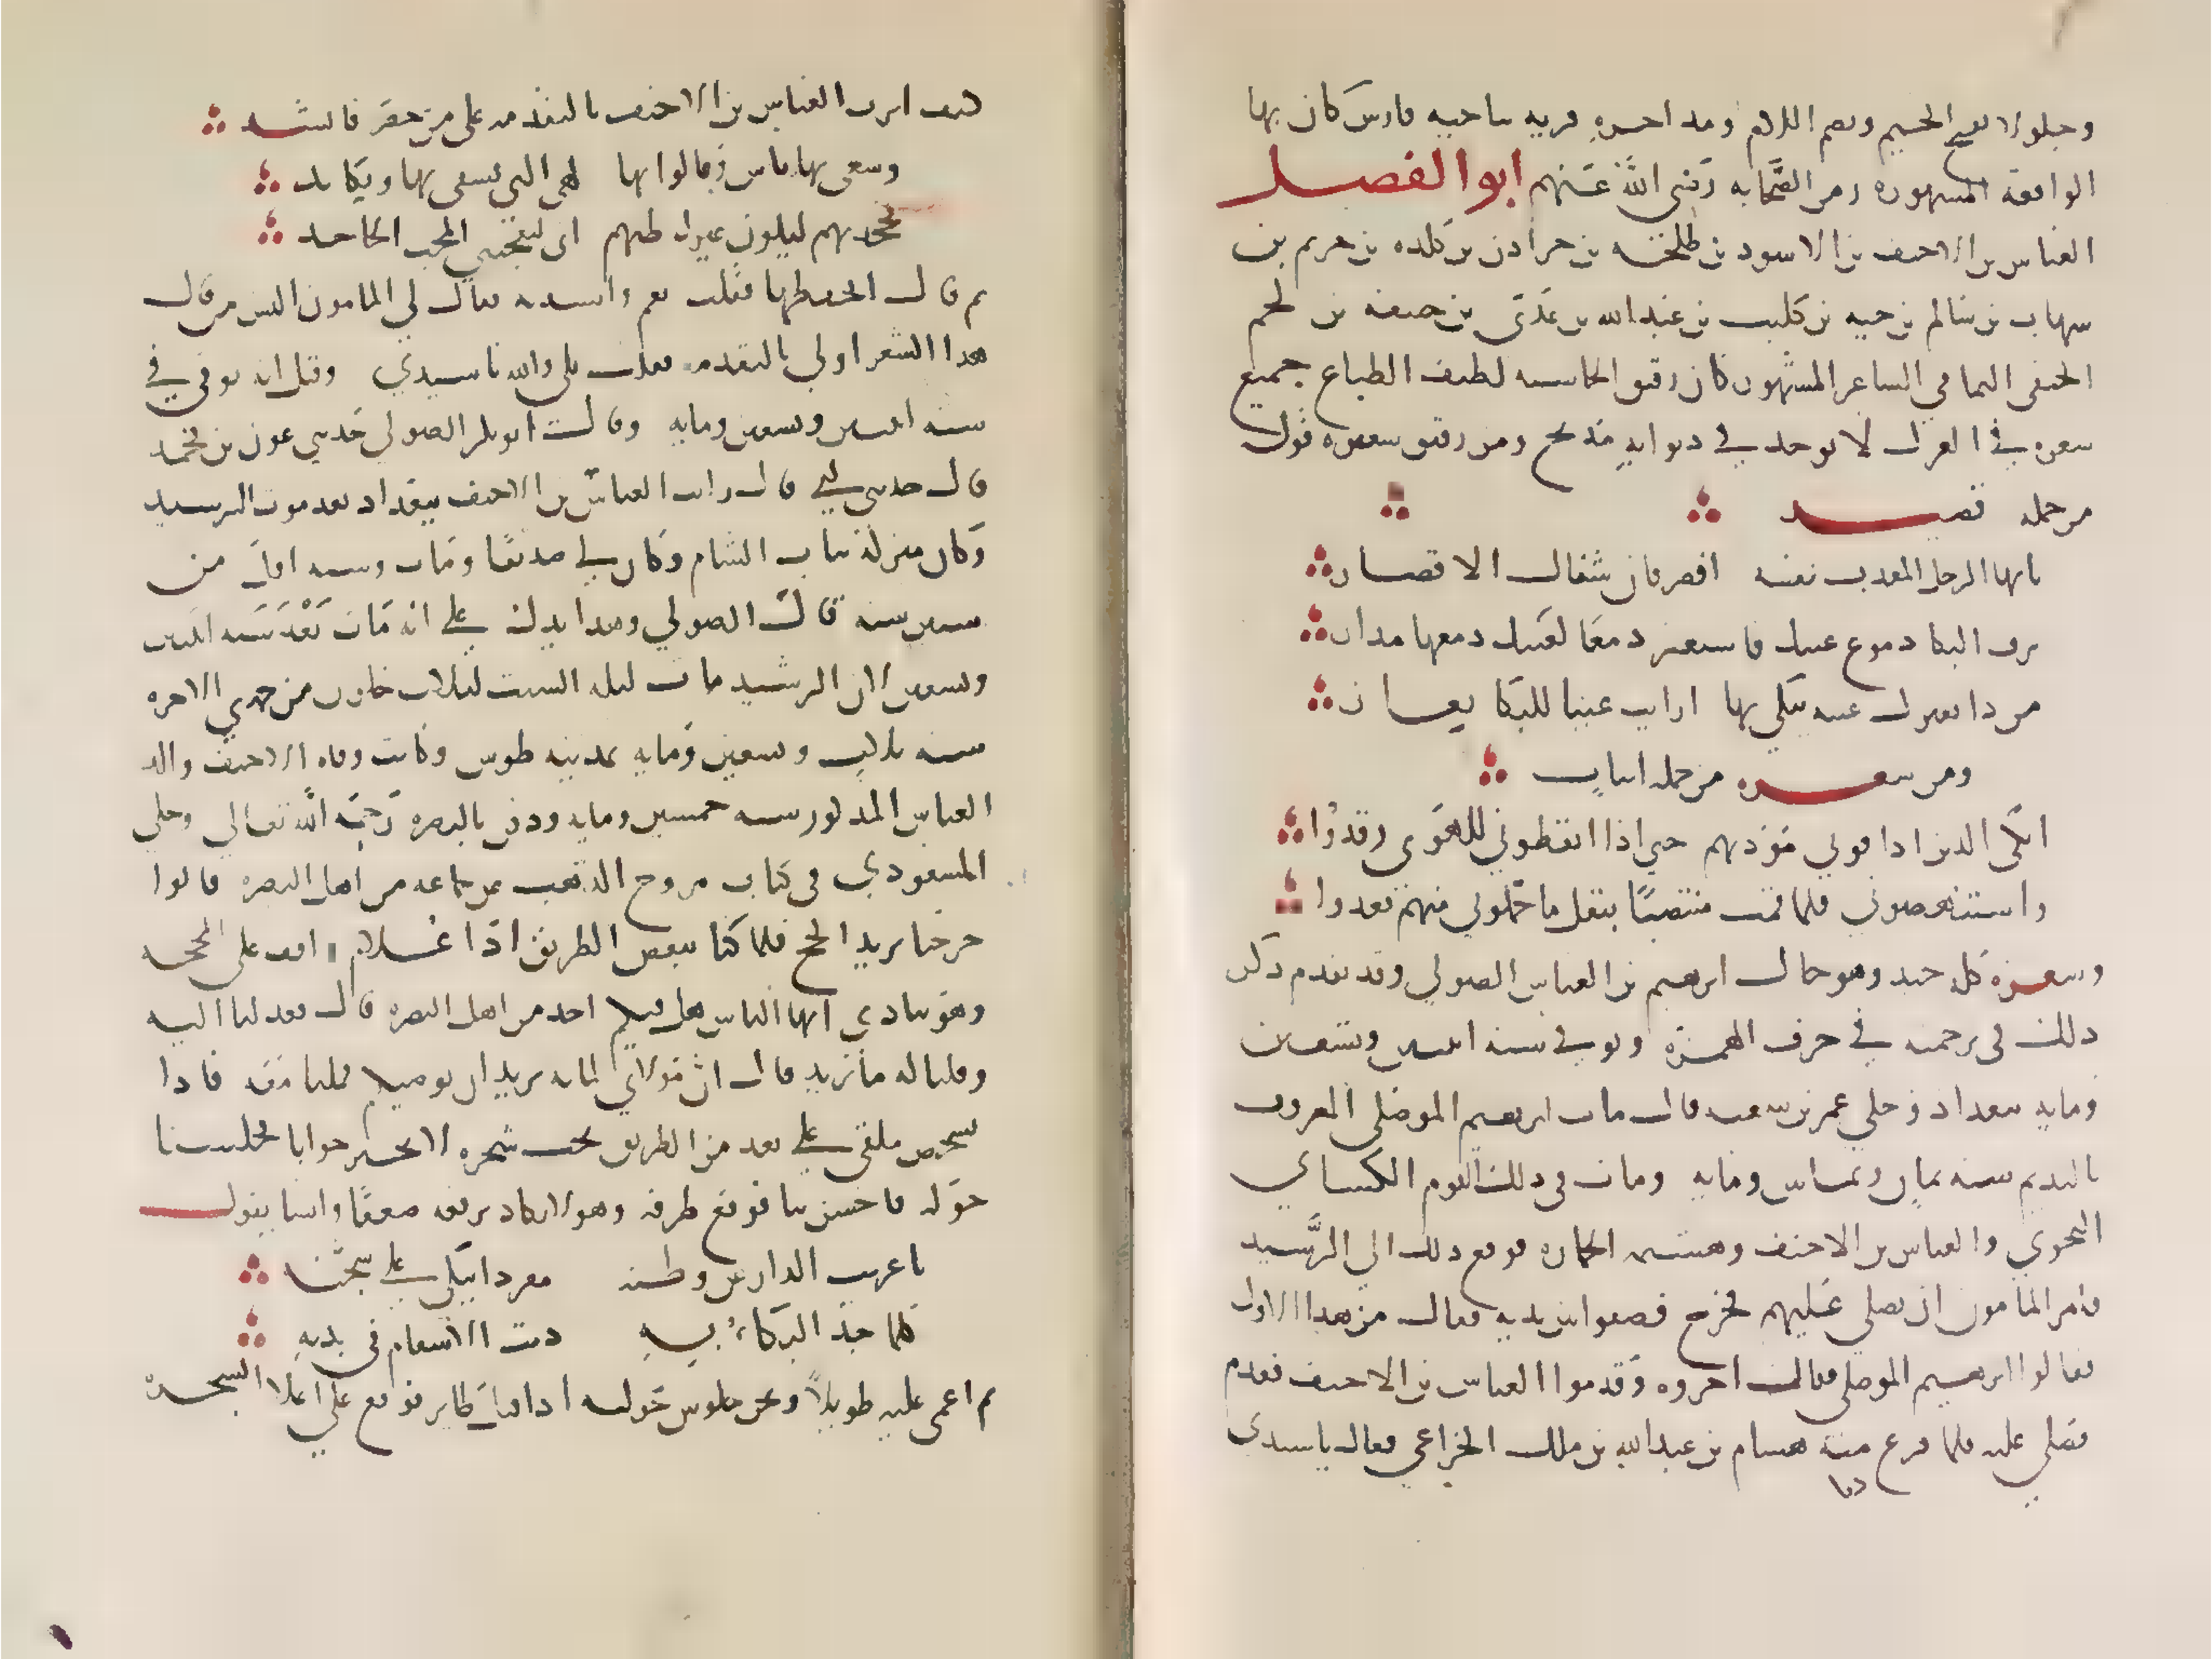 وجلولا بفتح الجيم وبضم اللام ومد اخره قرية بناحيه فارس كان بها
الواقعة المشهورة زمن الصحابه رضي الله عنهم ابو الفضل
العباس بن الاحنف بن الاسود بن طلحة بن حرادن بن كلده بن خريم بن
شهاب بن سالم بن حيه بن كليب بن عبد الله بن عدي بن حنيفة بن لجيم
الحنفي اليمامي الشاعر المشهور كان رقيق الحاشيه لطيف الطباع جميع
شعره في الغزل لا يوجد في ديوانه مديح ومن رقيق شعره قوله
من جمله قصيد
يا ايها الرجل المعذب نفسه اقصر فان شفاك الاقصار
نزف البكا دموع عينك فاستعر دمعا لعينك دمعها مدرار
من ذا يعيرك عينه تبكي بها ارايت عينا للبكا تعار
ومن شعره من جمله ابيات
ابكي الذين اذاقوني مودتهم حتى اذا ايقظوني للهوى رقدوا
واستنهضوني فلما قمت منتصبا بثقل ما حملوني منهم قعدوا
وشعره كله جيد وهو خال ابرهيم بن العباس الصولي وقد تقدم ذكر
ذلك في ترجمته في حرف الهمزة وتوفي سنه اثنين وتسعين
ومايه ببغداد وحكي عمر بن شبه قال مات ابرهيم الموصلي المعروف
بالنديم سنه ثمان وثمانين ومايه ومات في ذلك اليوم الكساي
النحوي والعباس بن الاحنف وهشيمه الخماره فرفع ذلك الي الرشيد
فامر المامون ان يصلي عليهم فخرج فصفوا بين يديه فقال من هذا الاول
فقالوا ابرهيم الموصلي فقال اخروه وقدموا العباس بن الاحنف فقدم
فصلي عليه فلما فرغ منه هشام بن عبد الله بن ملك الخزاعي فقال يا سيدي
دنا
كيف اثرت العباس بن الاحنف بالتقدمه علي من حضر فانشد
وسعي بها ناس فقالوا انها لهي التي تشقي بها وتكابد
فجحدتهم ليكون غيرك ظنهم اني ليعجبني المحب الجاحد
ثم قال اتحفظها فقلت نعم وانشدته فقال لي المامون اليس من قال
هذا الشعر اولي بالتقدمه فقلت بلي والله يا سيدي وقيل انه توفي في
سنه اثنين وتسعين ومايه وقال ابو بكر الصولي حدثني عون بن محمد
قال حدثني ابي قال رايت العباس بن الاحنف ببغداد بعد موت الرشيد
وكان منزله بباب الشام وكان لي صديقا ومات وسنه اقل من
ستين سنه قال الصولي وهذا يدل علي انه مات بعد سنه اثنين
وتسعين لان الرشيد مات ليله السبت لثلاث خلون من جمدي الاخره
سنه ثلاث وتسعين ومايه بمدينه طوس وكانت وفاه الاحنف والد
العباس المذكور سنه خمسين ومايه ودفن بالبصره رحمه الله تعالي وحكي
المسعودي في كتاب مروج الذهب عن جماعه من اهل البصره قالوا
خرجنا نريد الحج فلما كنا ببعض الطريق اذا غلام واقف علي المحجه
وهو ينادي ايها الناس هل فيكم احد من اهل البصره قال فعدلنا اليه
وقلنا له ما تريد قال ان مولاي لما به يريد ان يوصيكم فملنا معه فاذا
شخص ملقي علي بعد من الطريق تحت شجره لا يحير جوابا فجلسنا
حوله فاحس بنا فرفع طرفه وهو لا يكاد يرفعه ضعفا وانشا يقول
يا غريب الدار عن وطنه مفردا يبكي علي شجنه
كلما جد البكاء به دبت الاسقام في بدنه
ثم اغمي عليه طويلا ونحن جلوس حوله اذ اقبل طاير فوقع علي اعلا الشجره